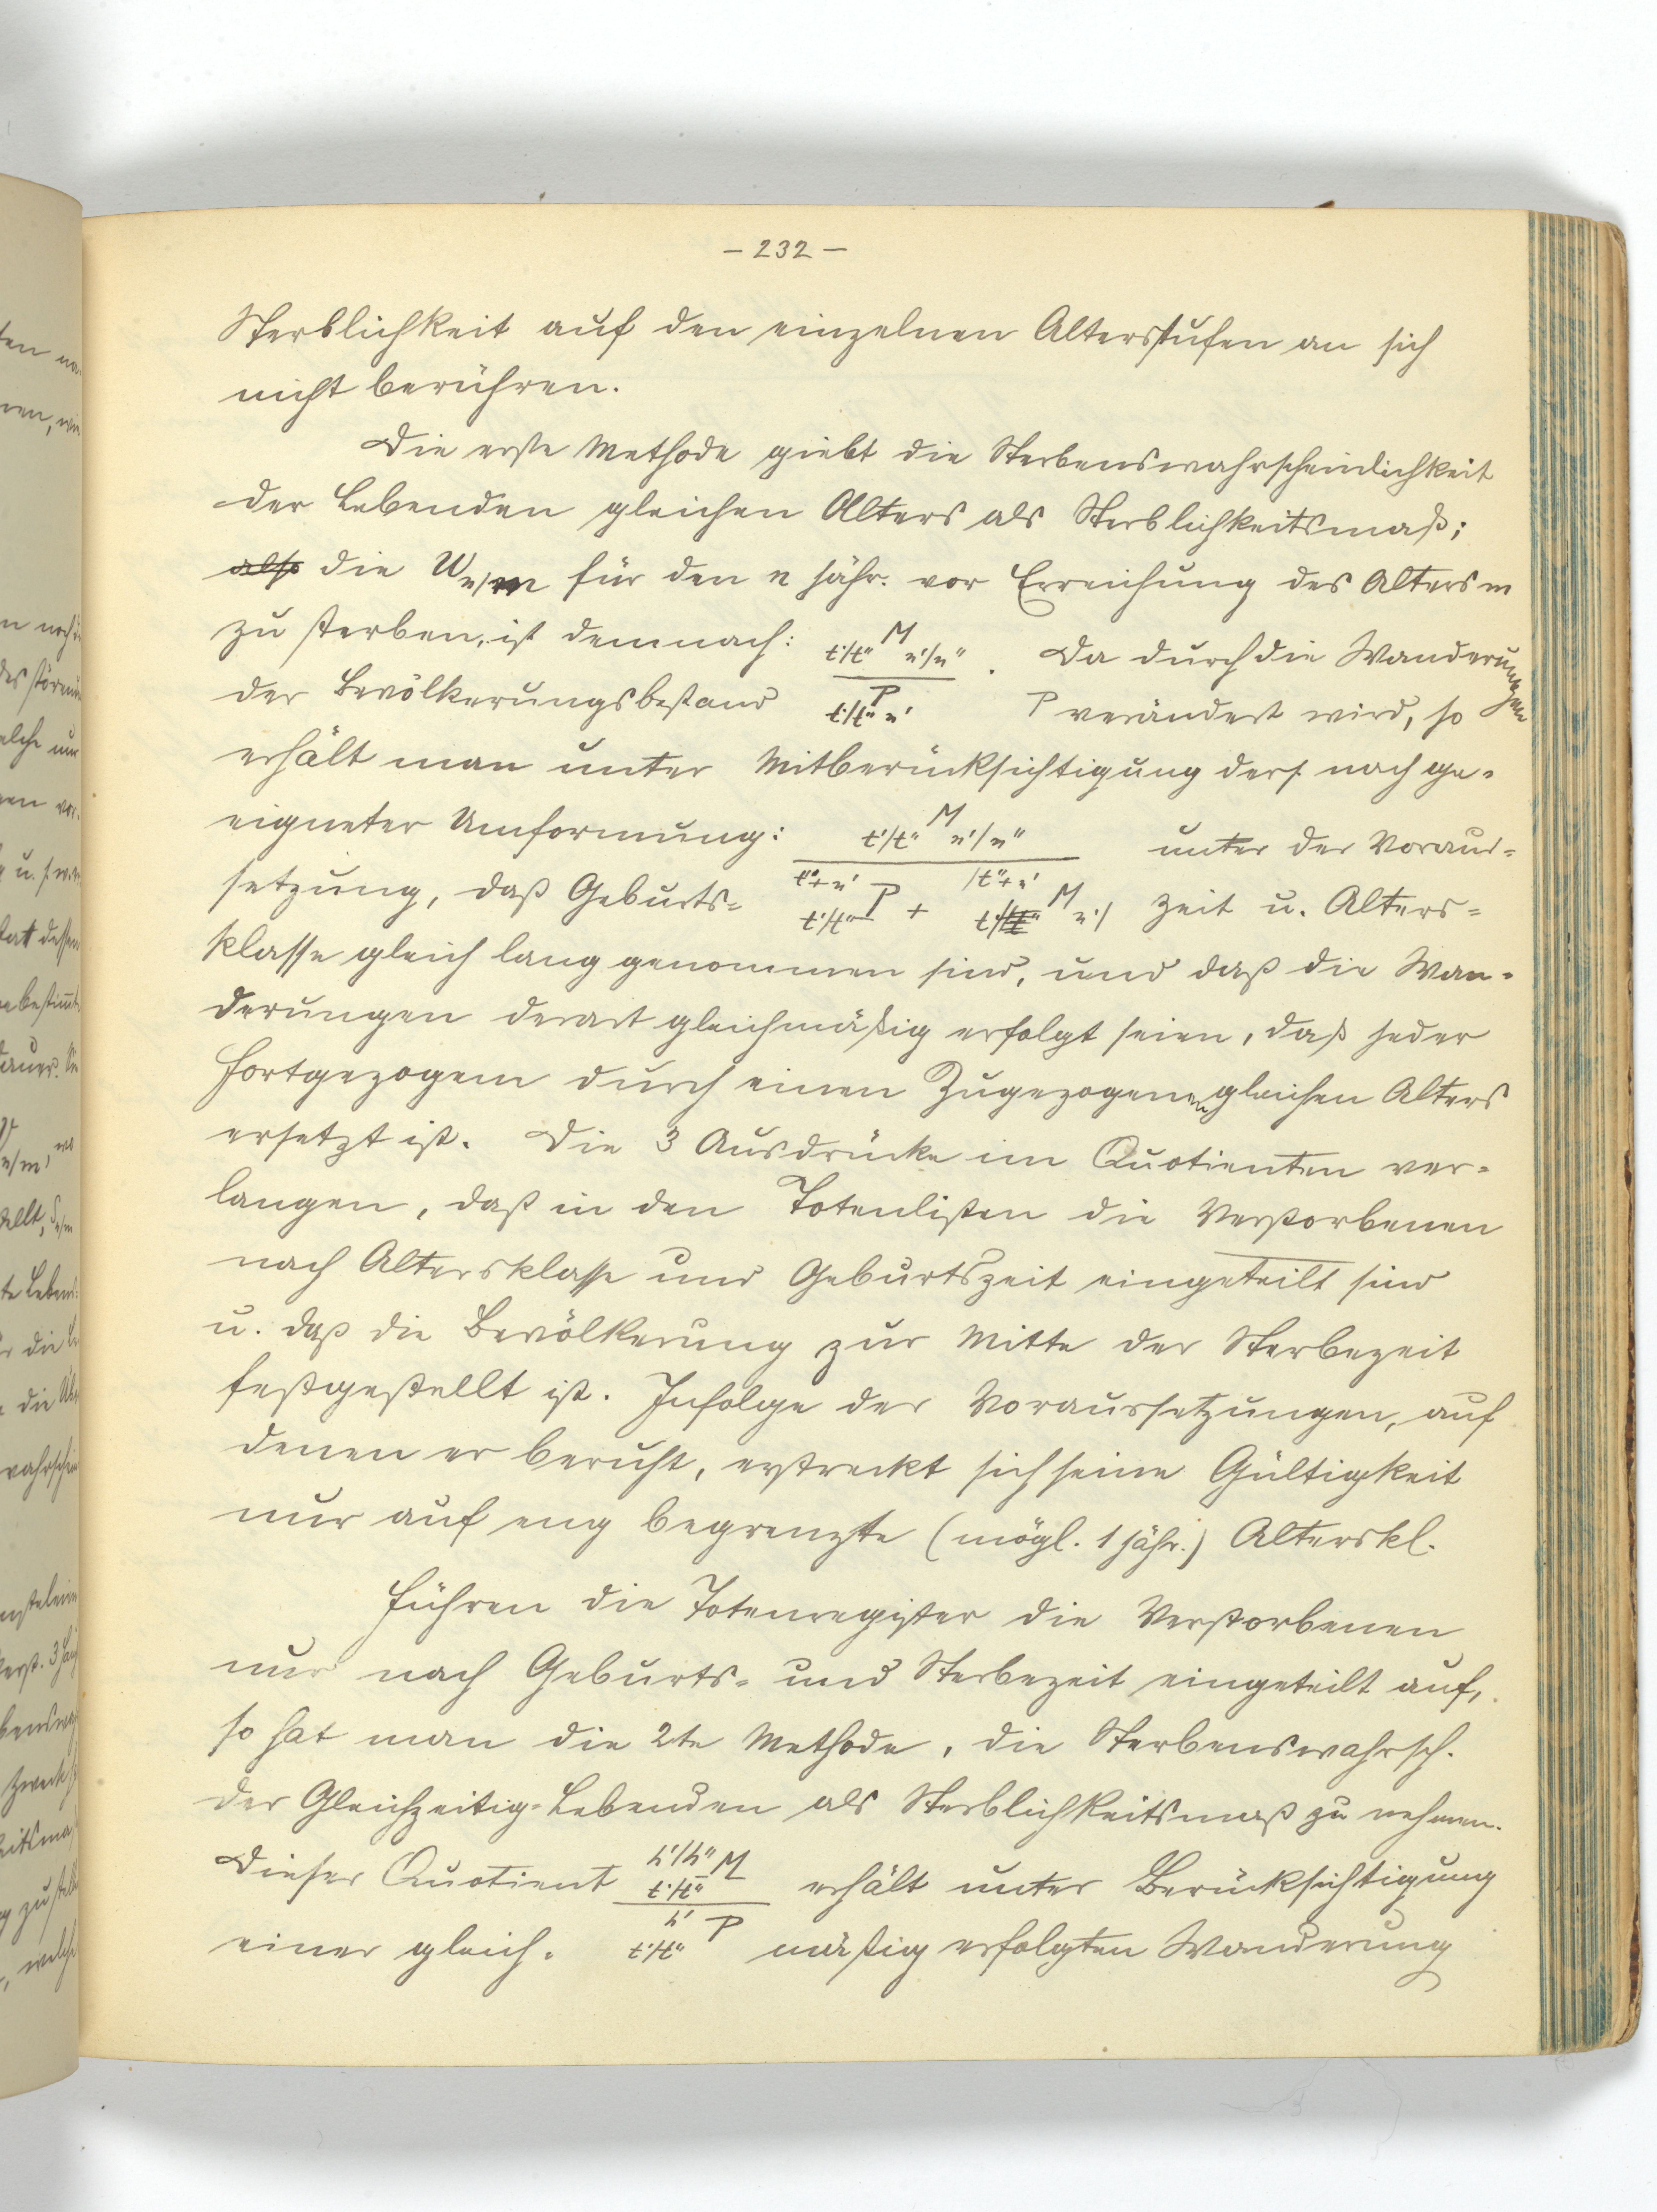 – 232 –
Sterblichkeit auf den einzelnen Altersstufen an sich
nicht berühren.
Die erste Methode giebt die Sterbenswahrscheinlichkeit
der Lebenden gleichen Alters als Sterblichkeitsmaß;
also die W n/m für den n jähr. vor Erreichung des Alters m
zu sterben, ist demnach: t'/t" M n'/n" . Da durch die Wanderungen
der Bevölkerungsbestand t'/t" P n' P verändert wird, so
erhält man unter Mitberücksichtigung ders. nach ge-
eigneter Umformung: t'/t" M n'/n" unter der Voraus-
setzung, daß Geburts- t"+n' t'/t" P + /t"+n' t'/ M n'/ Zeit u. Alters-
klasse gleich lang genommen sind, und daß die Wan-
derungen derart gleichmäßig erfolgt seien, daß jeder
Fortgezogene durch einen Zugezogenen gleichen Alters
ersetzt ist. Die 3 Ausdrücke im Quotienten ver-
langen, daß in den Totenlisten die Verstorbenen
nach Altersklasse und Geburtszeit eingeteilt sind
u. daß die Bevölkerung zur Mitte der Sterbezeit
festgestellt ist. Infolge der Voraussetzungen, auf
denen er beruht, erstreckt sich seine Gültigkeit
nur auf eng begrenzte (mögl. 1 jähr.) Alterskl.
Führen die Totenregister die Verstorbenen
nur nach Geburts- und Sterbezeit eingeteilt auf,
so hat man die 2te Methode, die Sterbenswahrsch.
der Gleichzeitig-Lebenden als Sterblichkeitsmaß zu nehmen.
Dieser Quotient h'/h" M t'/t" erhält unter Berücksichtigung
einer gleich- h' P t'/t" mäßig erfolgten Wanderung